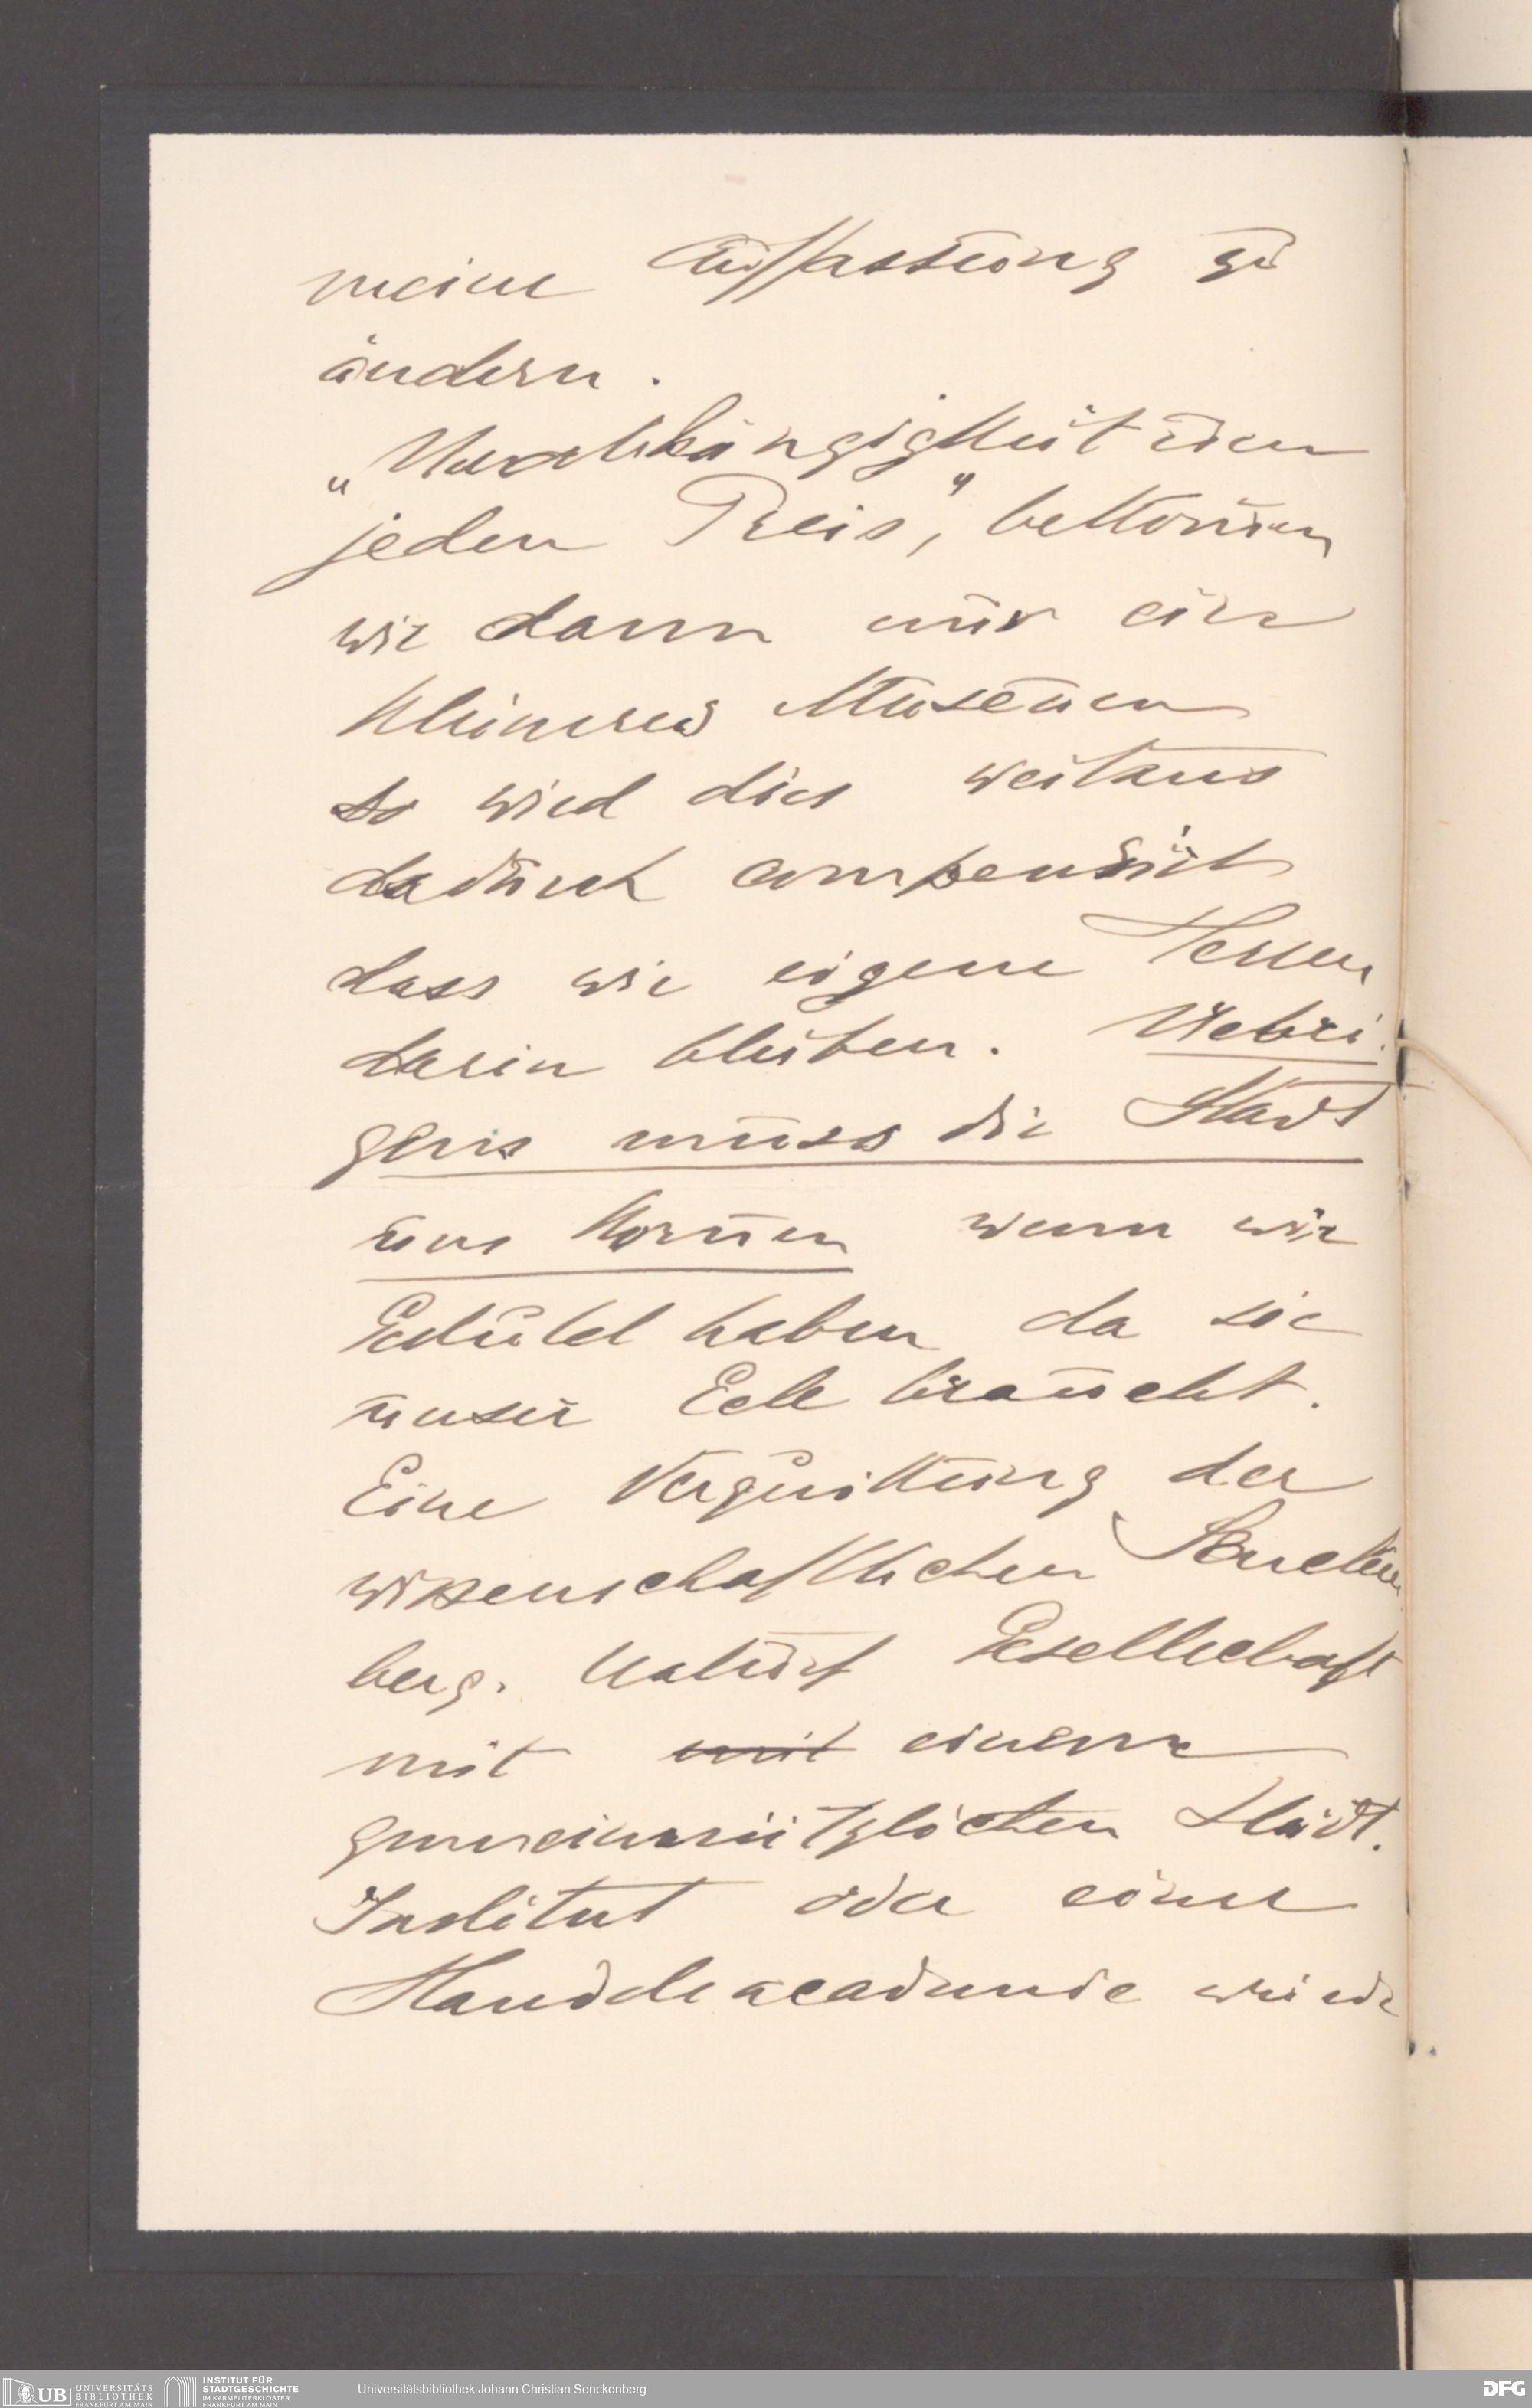 meine Auffassung zu
ändern.
„Unabhängigkeit um
jeden Preis", bekom̄en
wir dann nur ein
kleineres Museum
so wird dies weitaus
dadurch compensirt
dass wir eigene Herren
darin bleiben. Uebri-
gens muss die Stadt
uns kom̄en wenn wir
Geduld haben da sie
unser Eck braucht.
Eine Verquickung der
wissenschaftlichen Sencken
berg. naturf Gesellschaft
mit mit einem
gemeinnützlichen städt.
Institut oder einer
Handelsacademie würde
UB UNIVERSITÄTS
BIBLIOTHEK
FRANKFURT AM MAIN
INSTITUT FÜR
STADTGESCHICHTE
IM KARMELITERKLOSTER
FRANKFURT AM MAIN
Universitätsbibliothek Johann Christian Senckenberg
DFG